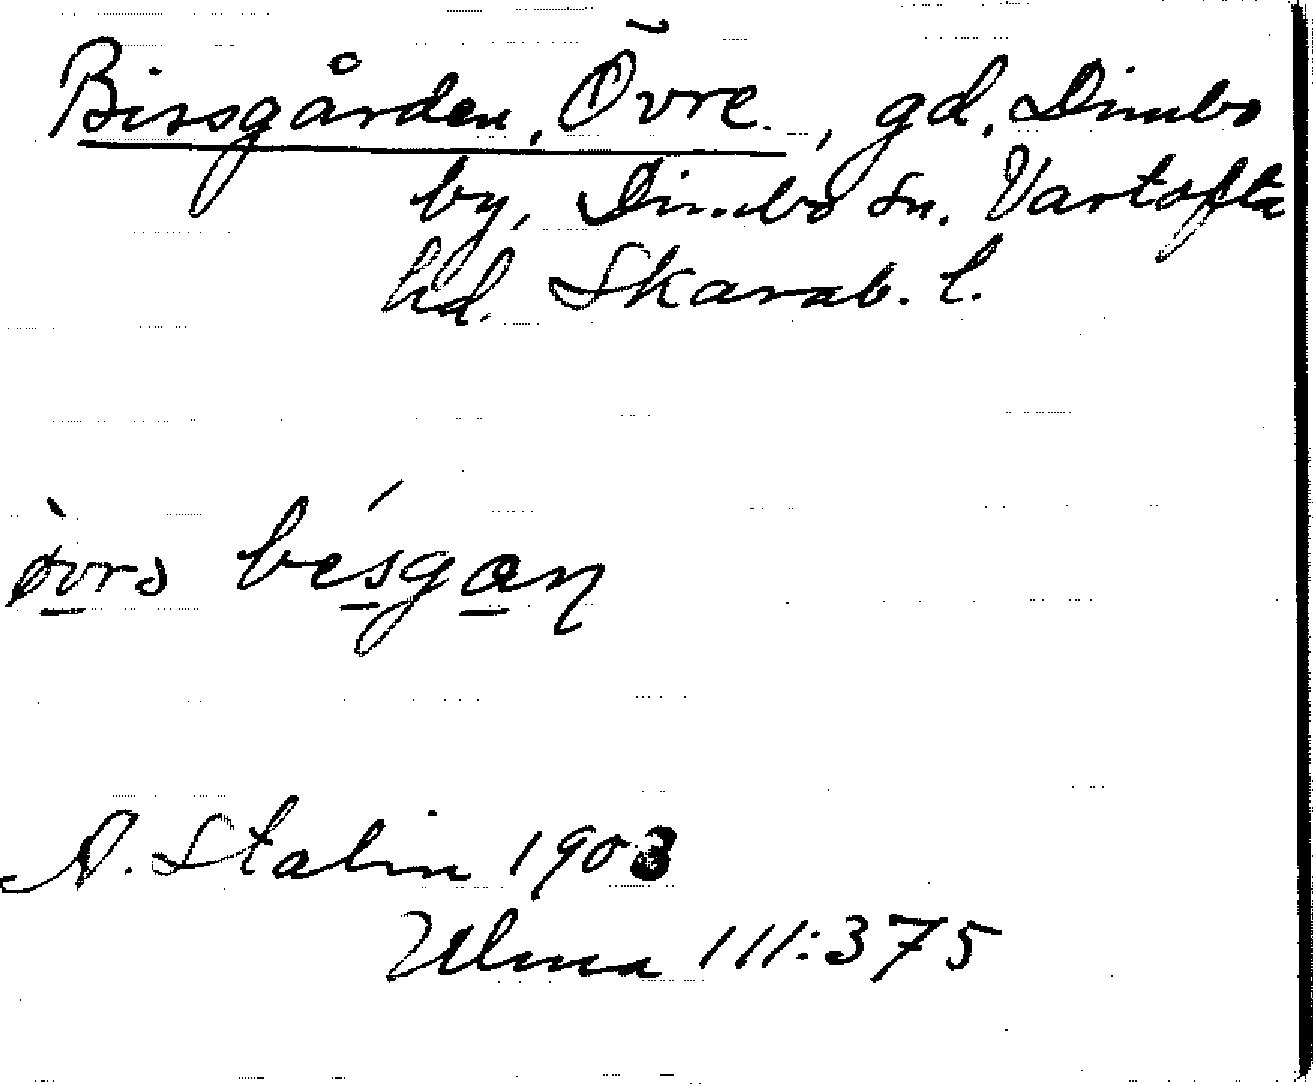 Bissgården, Övre, gd, Dimbo
by, Dimbo sn. Vartofta
hd. Skarab. l.
bésgan
A. Stalin 1903
Ulma 111:375